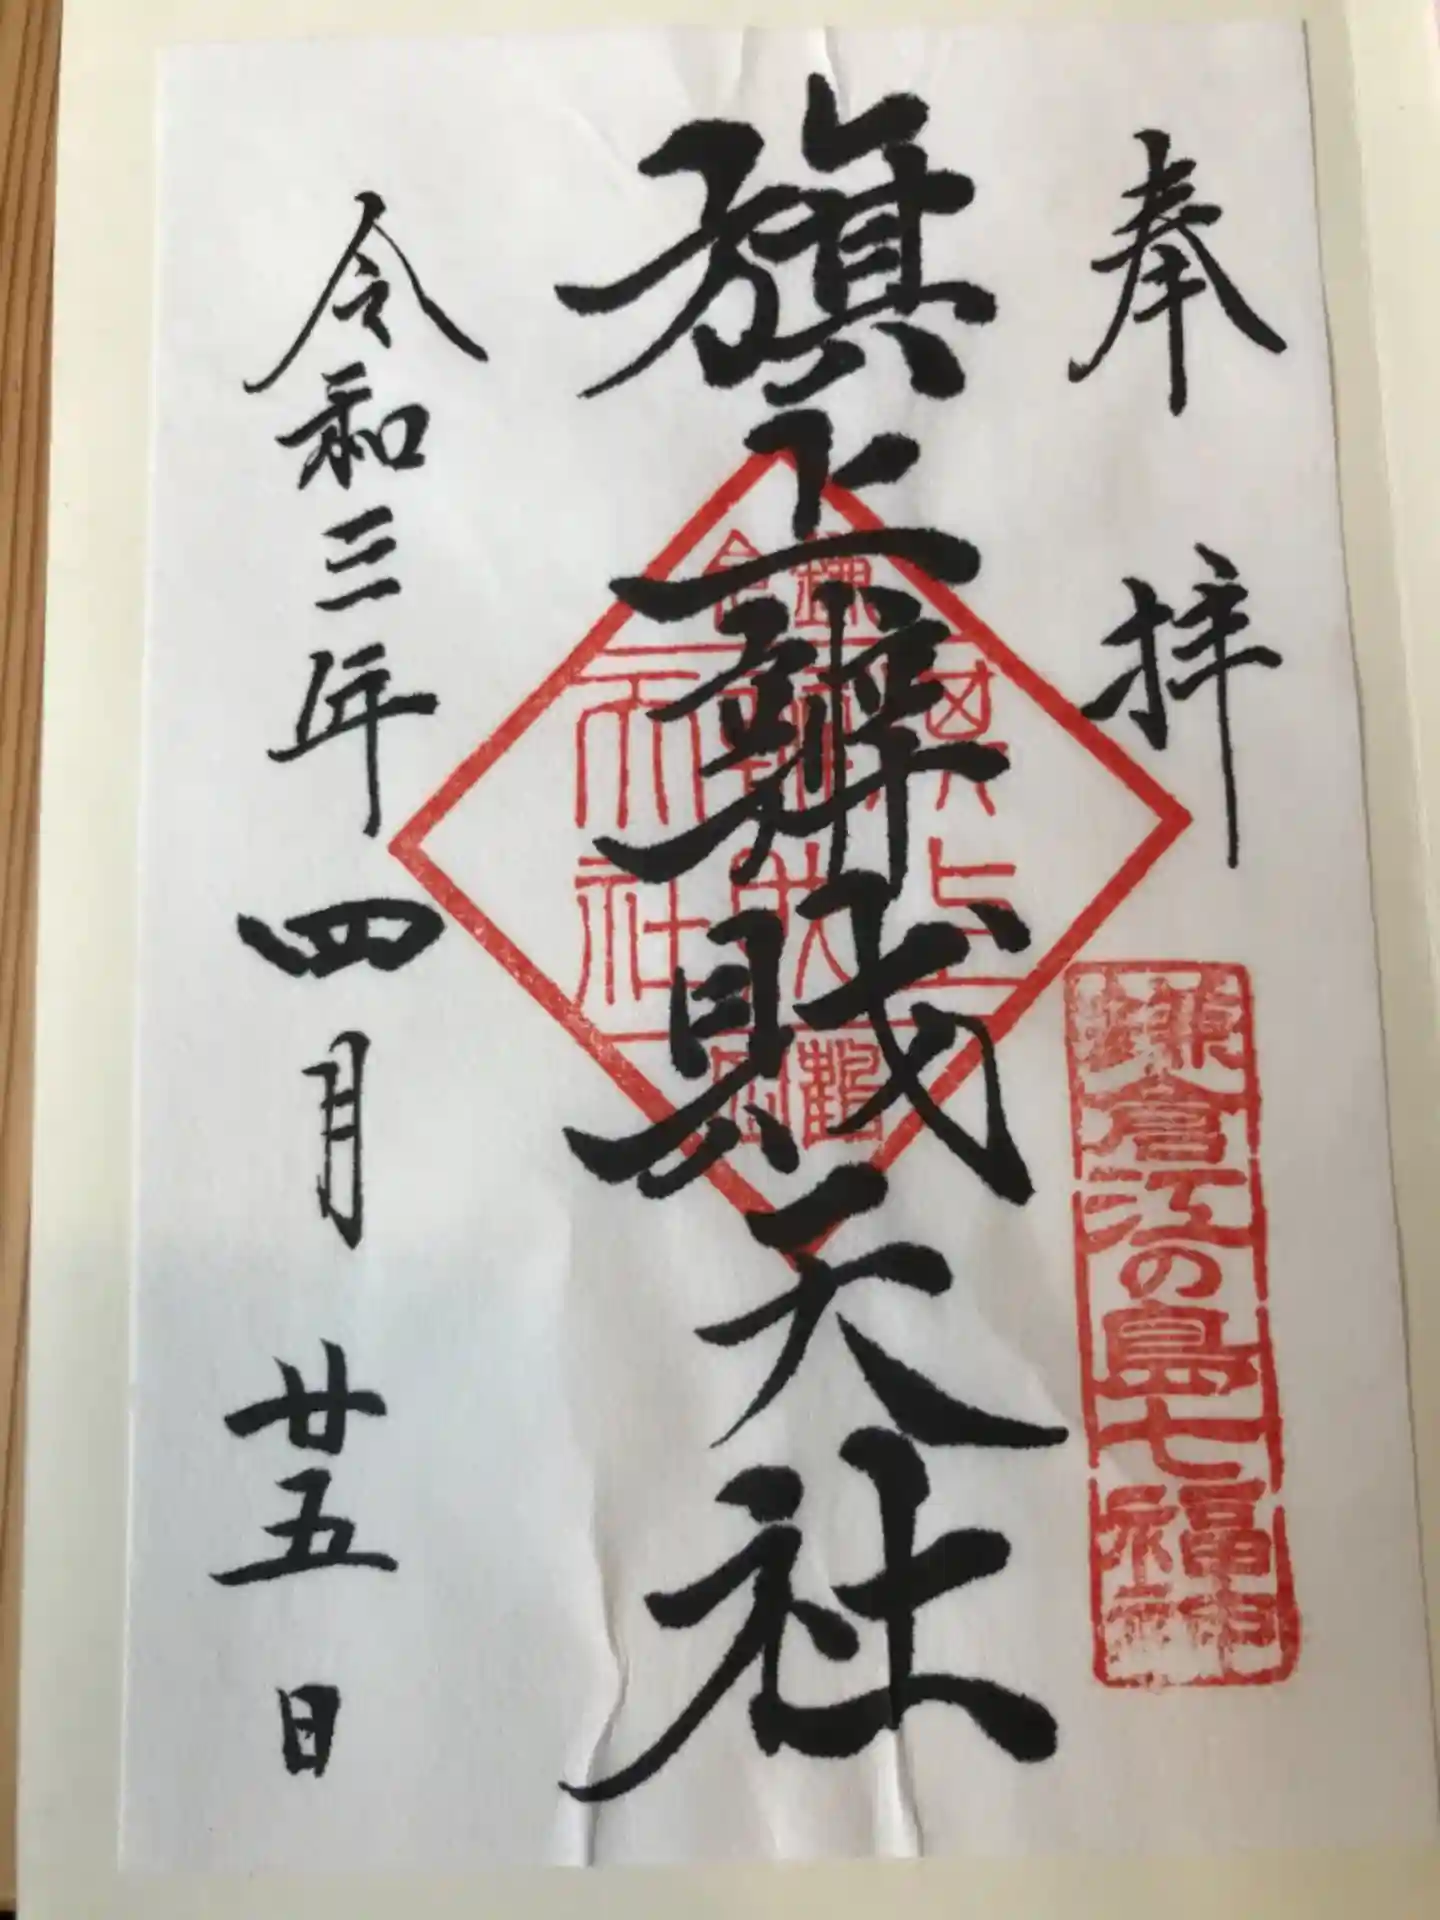 奉拝
鎌倉江の島七福神
旗上辨財天社
鎌倉
鶴岡
旗上
辨財
天社
令和三年四月廿五日